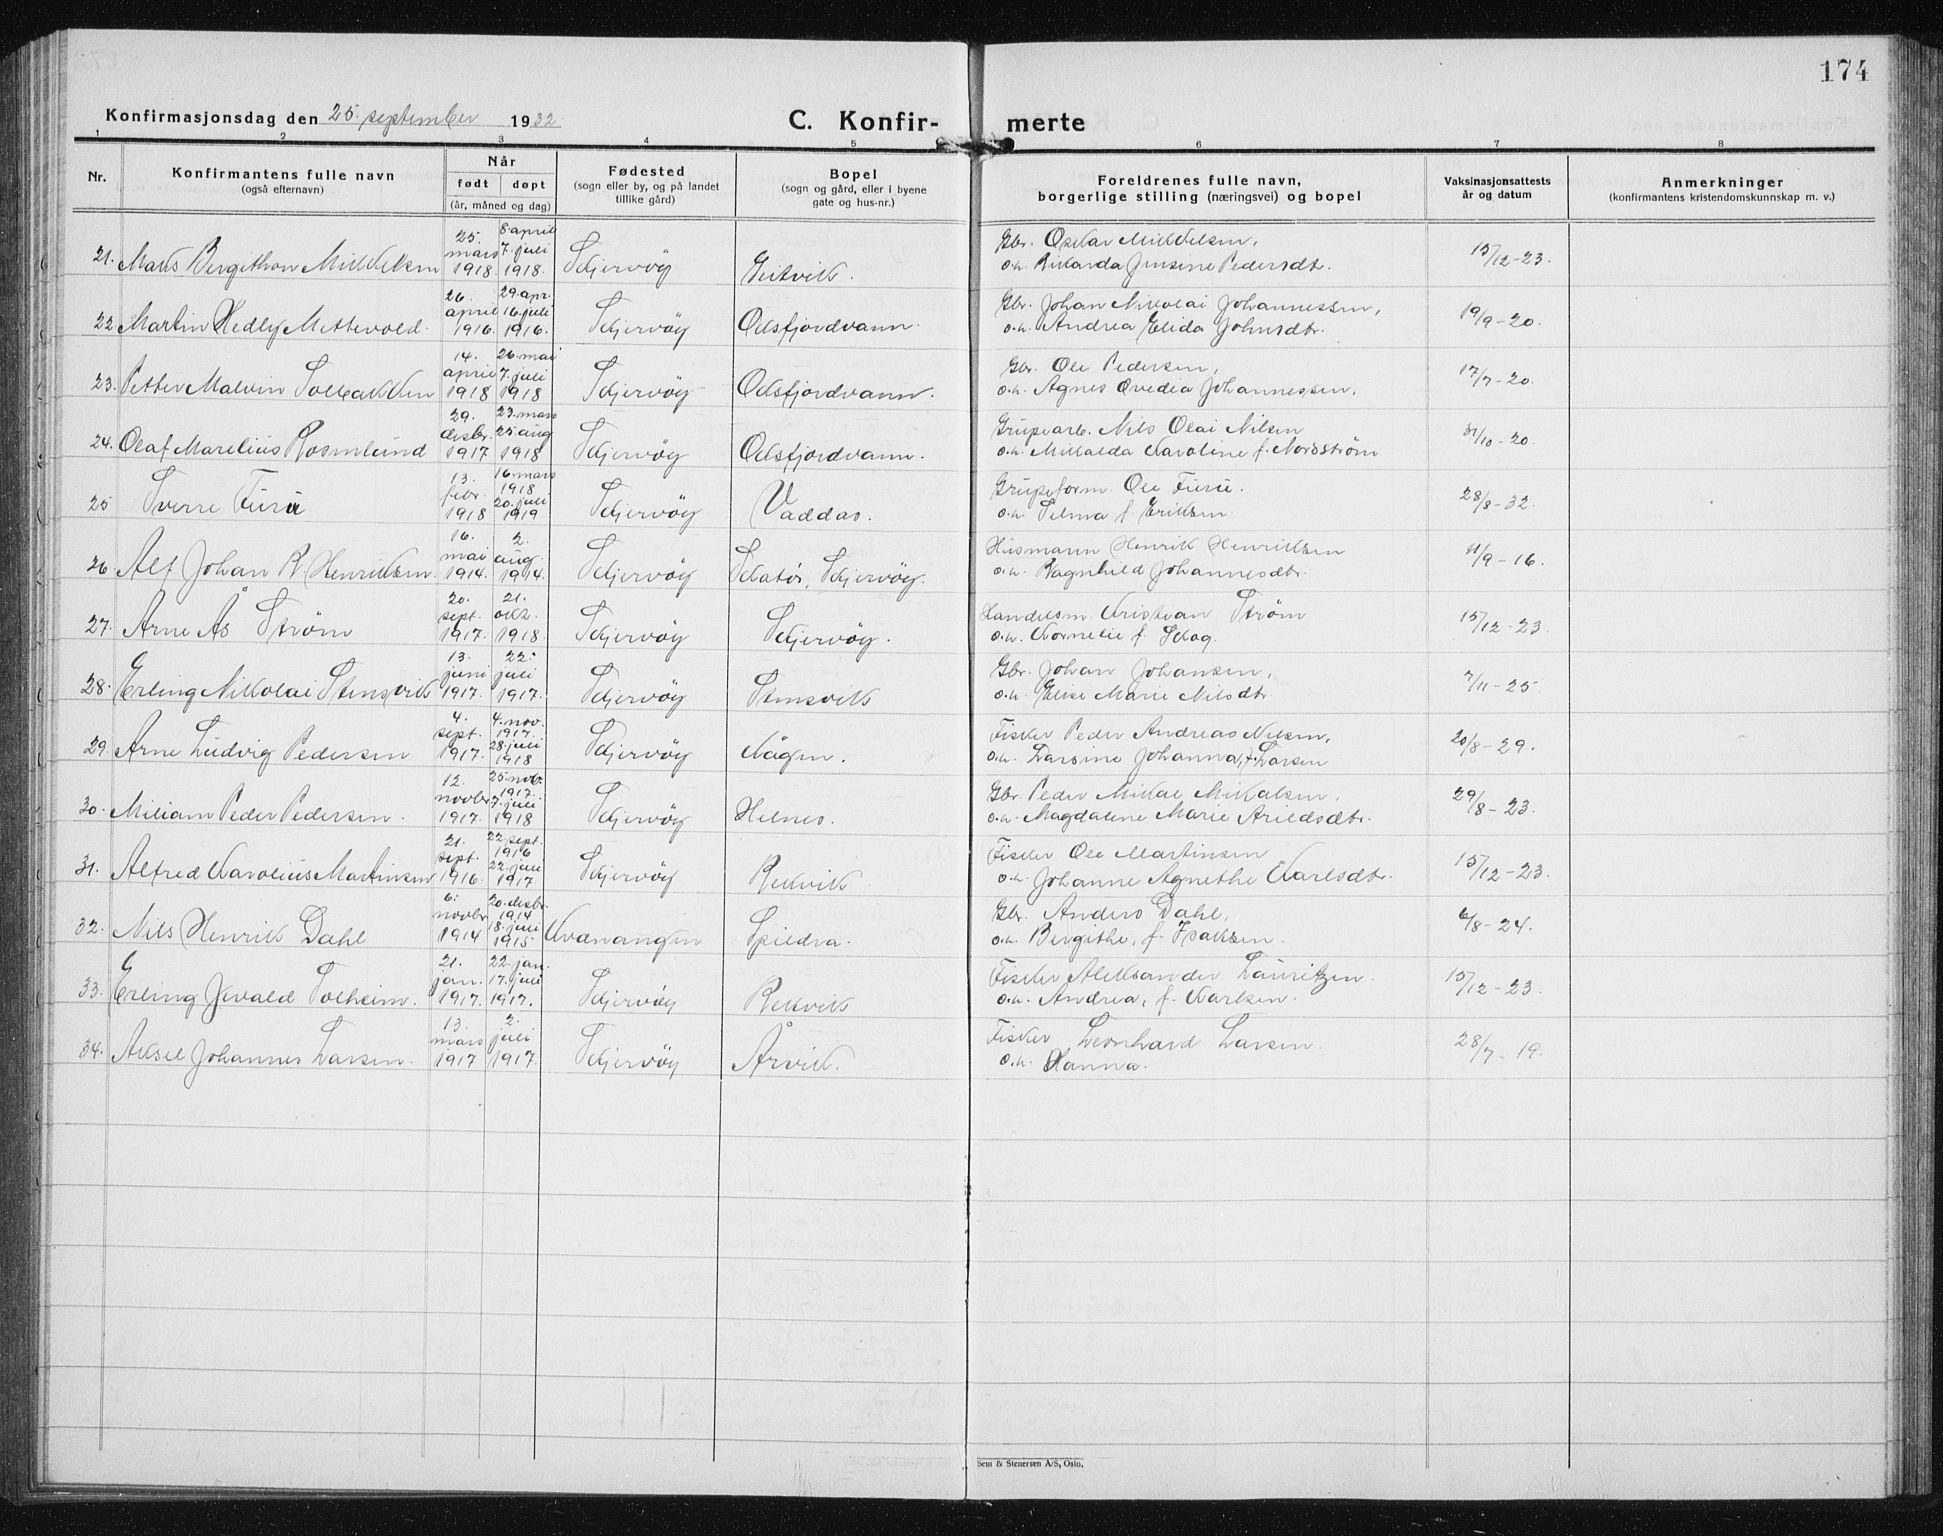 174
Konfirmasjonsdag den 25. september 1932.
C. Konfir- merte
1 2 3 4 5 6 7 8
Nr.
Konfirmantens fulle navn
(også efternavn)
Når
født døpt
(år, måned og dag)
Fødested
(sogn eller by, og på landet
tillike gård)
Bopel
(sogn og gård, eller i byene
gate og hus-nr.)
Foreldrenes fulle navn,
borgerlige stilling (næringsvei) og bopel
Vaksinasjonsattests
år og datum
Anmerkninger
(konfirmantens kristendomskunnskap m. v.)
21. Maks Bergithon Mikkelsen 25. mars 1918. 8. april 7. juli 1918. Skjervøy Geitvik. Gbr. Oskar Mikkelsen, 15/12-23.
o.h. Rikarda Jensine Pedersdtr.
22. Martin Hedly Mettevold. 26. april 1916. 29. apr. 16. juli 1916. Skjervøy Oksfjordvann. Gbr. Johan Nikolai Johannessen, 19/9-20.
o.h. Andrea Elida Johnsdtr.
23. Petter Malvin Solbakken 14. april 1918 26. mai 7. juli 1918 Skjervøy Oksfjordvann. Gbr. Ole Pedersen, 17/7-20.
o.h. Agnes Ovedia Johannessen.
24. Olaf Marelius Rosmlund 29. desbr. 1917 23. mars 25. aug 1918 Skjervøy Oksfjordvann. Grupearb. Nils Olai Nilsen 31/10-20.
o.h. Mikkalda Karoline f. Nordström
25 Sverre Furu 13. febr. 1918 16. mars 1918 20. juli 1919 Skjervøy Vaddas. Grupeform. Ole Furu. 28/8-32.
o.h. Selma f. Eriksen.
26. Alf Johan R. Henriksen 16. mai 1914. 2. aug. 1914. Skjervøy Skatør, Skjervøy. Husmann Henrik Henriksen 11/9-16.
o.h. Ragnhild Johannesdtr.
27. Arne Ås Strøm 20. sept. 1917. 21. okt. 1918. Skjervøy Skjervøy. Handelsm. Kristian Strøm 15/12-23.
o.h. Kornelie f. Skog.
28. Erling Nikolai Stensvik 13. juni 1917. 22. juli 1917. Skjervøy Stensvik Gbr. Johan Johansen, 7/11-25.
o.h. Elise Marie Nilsdtr.
29. Arne Ludvig Pedersen 4. sept. 1917. 4. nov. 1917. 28. juli 1918 Skjervøy Kågen. Fisker Peder Andreas Nilsen, 20/8-29.
o.h. Larsine Johanna, f. Larsen
30. Miliam Peder Pedersen. 12. novbr. 1917. 25. nov. 1917. 7. juli 1918 Skjervøy Helnes. Gbr. Peder Mikal Mikalsen. 29/8-23.
o.h. Magdalene Marie Arildsdtr.
31. Alfred Karolius Martinsen 21. sept. 1916. 22. sept. 1916 22. juli 1917 Skjervøy Rekvik Fisker Ole Martinsen 15/12-23.
o.h. Johanne Agnethe Karlsdtr.
32. Nils Henrik Dahl 6. novbr. 1914 20. desbr. 1914 18. juli 1915 Kvænangen Spildra. Gbr. Anders Dahl, 6/8-24.
o.h. Bergithe, f. Isaksen.
33. Erling Jevald Solheim. 21. jan. 1917. 22. jan. 17. juli 1917. Skjervøy Rekvik Fisker Aleksander Lauritzen. 15/12-23.
o.h. Andrea, f. Karlsen.
34. Aksel Johannes Larsen. 13. mars 1917 2. juli 1917. Skjervøy Årvik. Fisker Leonhard Larsen. 28/7-19.
o.h. Hanna.
Sem & Stenersen A/S, Oslo.